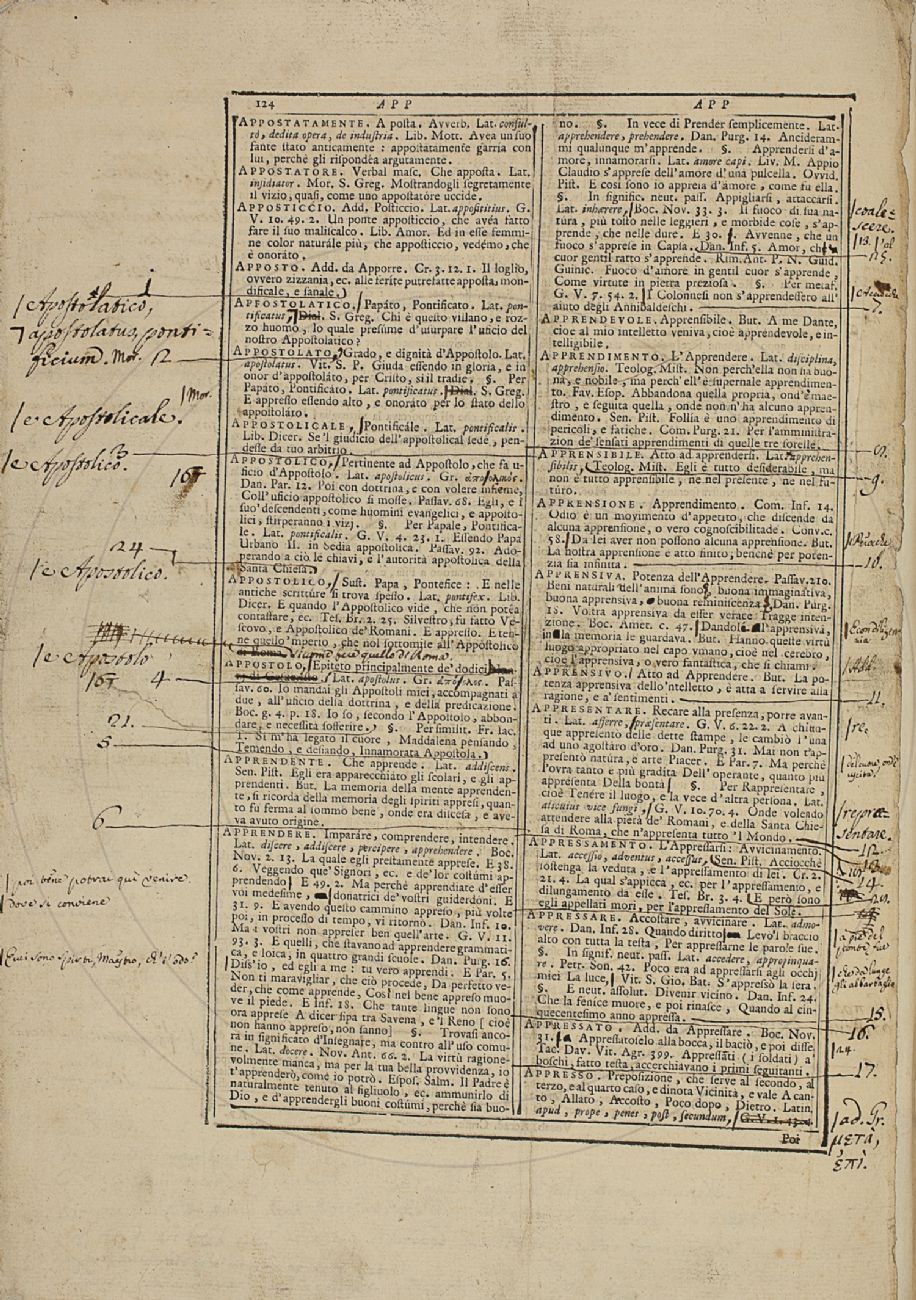 124 APP APP
APPOSTATAMENTE. A posta. Avverb. Lat. consul-
tò, dedita opera, de industria. Lib. Mott. Avea un suo
fante stato anticamente: appostatamente garría con
lui, perchè gli rispondéa argutamente.
APPOSTATORE. Verbal masc. Che apposta. Lat.
insidiator. Mor. S. Greg. Mostrandogli segretamente
il vizio, quasi, come uno appostatóre uccide.
APPOSTICCIO. Add. Posticcio. Lat. appositítius. G.
V. 10. 49. 2. Un ponte apposticcio, che avéa fatto
fare il suo maliscalco. Lib. Amor. Ed in esse femmi-
ne color naturále più, che apposticcio, vedémo, che
è onoráto.
APPOSTO. Add. da Apporre. Cr. 3. 12. 1. Il loglio,
ovvero zizzania, ec. alle ferite putrefatte apposta, mon-
dificale, e sanale.
APPOSTOLATICO. Papáto, Pontificato. Lat. pon-
tificatus, Dial. S. Greg. Chi è questo villano, e roz-
zo huomo, lo quale presúme d'usurpare l'uficio del
nostro Appostolático?
APPOSTOLATO, Grado, e dignità d'Appostolo. Lat.
apostolatus. Vit. S. P. Giuda essendo in gloria, e in
onor d'appostoláto, per Cristo, sì il tradíe. §. Per
Papáto, Pontificáto. Lat. pontificatus. Dial. S. Greg.
E appresso essendo alto, e onoráto per lo stato dello
appostoláto.
APPOSTOLICALE, Pontificále. Lat. pontificalis.
Lib. Dicer. Se'l giudicio dell'appostolical sede, pen-
desse da tuo arbitrio.
APPOSTOLICO, Pertinente ad Appostolo, che fa u-
ficio d'Appostolo. Lat. apostolicus. Gr.
Dan. Par. 12. Poi con dottrina, e con volere insieme,
Coll'uficio appostólico si mosse. Passav. 68. Egli, e i
suo'descendenti, come huomini evangelici, e apposto-
lici, stirperanno i vizj. §. Per Papale, Pontifica-
le. Lat. pontificalis. G. V. 4. 23. 1. Essendo Papa
Urbano II. in Sedia appostolica. Passav. 92. Ado-
perando a ciò le chiavi, e l'autorità appostolica della
Santa Chiesa.
APPOSTOLICO, Sust. Papa, Pontefice: E nelle
antiche scritture si trova spesso. Lat. pontifex. Lib.
Dicer. E quando l'Appostólico vide, che non potéa
contastare, ec. Tes. Br. 2. 25. Silvestro, fu fatto Ve-
scovo, e Appostolico de'Romani. E appresso. E ten-
ne quello'mperio, che nol sottomise all'Appostolico
APPOSTOLO, Epiteto principalmente de'dodici
Lat. apostolus. Gr. Pas-
sav. 60. Io mandai gli Appostoli miei, accompagnati a
due, all'uficio della dottrina, e della predicazione.
Boc. g. 4. p. 18. Io so, secondo l'Appostolo, abbon-
dare, e necessità sofferire. §. Per similit. Fr. Iac.
T. Sì m'ha legato il cuore, Maddalena pensando,
Temendo, e desiando, Innamorata Appostola.
APPRENDENTE. Che apprende. Lat. addiscens.
Sen. Pist. Egli era apparecchiáto gli scolari, e gli ap-
prendenti. But. La memoria della mente apprenden-
te, si ricorda della memoria degli spiriti appresi, quan-
to fu ferma al sommo bene, onde era discesa, e ave-
va avuto origine.
APPRENDERE. Imparáre, comprendere, intendere.
Lat. discere, addiscere, percipere, apprehendere. Boc.
Nov. 2. 13. La quale egli prestamente apprese. E 38.
6. Veggendo que'Signori, ec. e de'lor costúmi ap-
prendendo E 49. 2. Ma perchè apprendiate d'esser
voi medesime, donatrici de'vostri guiderdoni. E
31. 9. E avendo questo cammino appreso, più volte
poi, in processo di tempo, vi ritornò. Dan. Inf. 10.
Ma i vostri non appreser ben quell'arte. G. V. 11.
93. 3. E quelli, che stavano ad apprendere grammati-
ca, e loica, in quattro grandi scuole. Dan. Purg. 16.
Diss'io, ed egli a me: tu vero apprendi. E Par. 5.
Non ti maravigliar, che ciò procede, Da perfetto ve-
der, che come apprende, Così nel bene appreso muo-
ve il piede. E Inf. 18. Che tante lingue non sono
ora apprese A dicer sipa tra Savena, e'l Reno [cioè
non hanno appreso, non sanno] §. Trovasi anco-
ra in significato d'Insegnare, ma contro all'uso comu-
ne. Lat. docere. Nov. Ant. 66. 2. La virtù ragione-
volmente manca, ma per la tua bella provvidenza, io
t'apprenderò, come io potrò. Espos. Salm. Il Padre è
naturalmente tenuto al figliuolo, ec. ammunirlo di
Dio, e d'apprendergli buoni costúmi, perchè sia buo-
no. §. In vece di Prender semplicemente. Lat.
apprehendere, prehendere. Dan. Purg. 14. Anciderem-
mi qualunque m'apprende. §. Apprendersi d'a-
more, innamorarsi. Lat. amore capi. Liv. M. Appio
Claudio s'apprese dell'amore d'una pulcella. Ovvid.
Pist. E così sono io appresa d'amore, come fu ella.
§. In signific. neut. pass. Appigliarsi, attaccarsi.
Lat. inhærere, Boc. Nov. 33. 3. Il fuoco di sua na-
tura, più tosto nelle leggieri, e morbide cose, s'ap-
prende, che nelle dure. E 30. Avvenne, che un
fuoco s'apprese in Capsa. Dan. Inf. 5. Amor, ch'a
cuor gentil ratto s'apprende. Rim. Ant. P. N. Guid.
Guinic. Fuoco d'amore in gentil cuor s'apprende,
Come virtute in pietra preziosa. §. Per metaf.
G. V. 7. 54. 2. I Colonnesi non s'apprendessero all'
aiuto degli Annibaldeschi.
APPRENDEVOLE. Apprensibile. But. A me Dante,
cioè al mio intelletto veniva, cioè apprendevole, e in-
telligibile.
APPRENDIMENTO. L'Apprendere. Lat. disciplina,
apprehensio. Teolog. Mist. Non perch'ella non sia buo-
na, e nobile, ma perch'ell'è supernale apprendimen-
to. Fav. Esop. Abbandona quella propria, ond'è mae-
stro, e seguita quella, onde non n'ha alcuno appren-
dimento. Sen. Pist. Follía è uno apprendimento di
pericoli, e fatiche. Com. Purg. 21. Per l'amministra-
zion de'sensati apprendimenti di quelle tre sorelle.
APPRENSIBILE. Atto ad apprendersi. Lat. apprehen-
sibilis, Teolog. Mist. Egli è tutto desiderabile, ma
non è tutto apprensibile, nè nel presente, nè nel fu-
túro.
APPRENSIONE. Apprendimento. Com. Inf. 14.
Odio è un movimento d'appetito, che discende da
alcuna apprensione, o vero cognoscibilitade. Conv. c.
58. Da lei aver non possono alcuna apprensione. But.
La nostra apprensione è atto finito, benchè per poten-
zia sia infinita.
APPRENSIVA. Potenza dell'Apprendere. Passav. 210.
Beni naturali dell'anima sono, buona immaginativa,
buona apprensiva, buona reminiscenza, Dan. Purg.
18. Vostra apprensiva da esser verace Tragge inten-
zione. Boc. Amet. c. 47. Dandole all'apprensiva,
in la memoria le guardava. But. Hanno queste virtù
luogo appropriato nel capo umano, cioè nel cerebro,
cioè l'apprensiva, o vero fantastica, che si chiami.
APPRENSIVO. Atto ad Apprendere. But. La po-
tenza apprensiva dello'ntelletto, è atta a servire alla
ragione, e a'sentimenti.
APPRESENTARE. Recare alla presenza, porre avan-
ti. Lat. afferre, præsentare. G. V. 6. 22. 2. A chiun-
que appresentò delle dette stampe, le cambiò l'una
ad uno agostáro d'oro. Dan. Purg. 31. Mai non t'ap-
presentò natura, e arte Piacer. E Par. 7. Ma perchè
l'ovra tanto è più gradita Dell'operante, quanto più
appresenta Della bontà §. Per Rappresentare,
cioè Tenére il luogo, e la vece d'altra persona. Lat.
alicuius vice fungi, G. V. 10. 70. 4. Onde volendo
attendere alla pietà de'Romani, e della Santa Chie-
sa di Roma, che n'appresenta tutto'l Mondo.
APPRESSAMENTO. L'Appressarsi: Avvicinamento.
Lat. accessio, adventus, accessus, Sen. Pist. Acciocchè
sostenga la veduta, e l'appressamento di lei. Cr. 2.
21. 4. La qual s'appicca, ec. per l'appressamento, e
dilungamento da esse. Tes. Br. 3. 4. E però sono
egli appellati mori, per l'appressamento del Sole.
APPRESSARE. Accostare, avvicinare. Lat. admo-
vere. Dan. Inf. 28. Quando diritto Levò'l braccio
alto con tutta la testa, Per appressarne le parole sue.
§. In signif. neut. pass. Lat. accedere, appropinqua-
re. Petr. Son. 42. Poco era ad appressarsi agli occhj
miei La luce, Vit. S. Gio. Bat. S'appressò la sera.
§. E neut. assolut. Divenir vicino. Dan. Inf. 24.
Che la fenice muore, e poi rinasce, Quando al cin-
quecentesimo anno appressa.
APPRESSATO. Add. da Appressare. Boc. Nov.
31. Appressatoselo alla bocca, il baciò, e poi disse.
Tac. Dav. Vit. Agr. 399. Appressati (i soldati) a'
boschi, fatto testa, accerchiavano i primi seguitanti.
APPRESSO. Preposizione, che serve al secondo, al
terzo, e al quarto caso, e dinota Vicinità, e vale A can-
to, Allato, Accosto, Poco dopo, Dietro. Latin.
apud, prope, penes, post, secundum, G. V. 1. 43. 4.
Poi
e Apostolatico,
apostolatus, ponti-
ficium. Mor. 12
Mor.
e Apostolicale.
e Apostolico.
24
e Apostolico.
e Apostolo
4
21
5
6
poi bene potrai quì venire
dove si conviene
coale-
scere.
7.
9.
10.
11.
re.
repræ-
sentare.
12.
15.
16.
24
17.
ad. Gr.
μετὰ,
ἐπί.